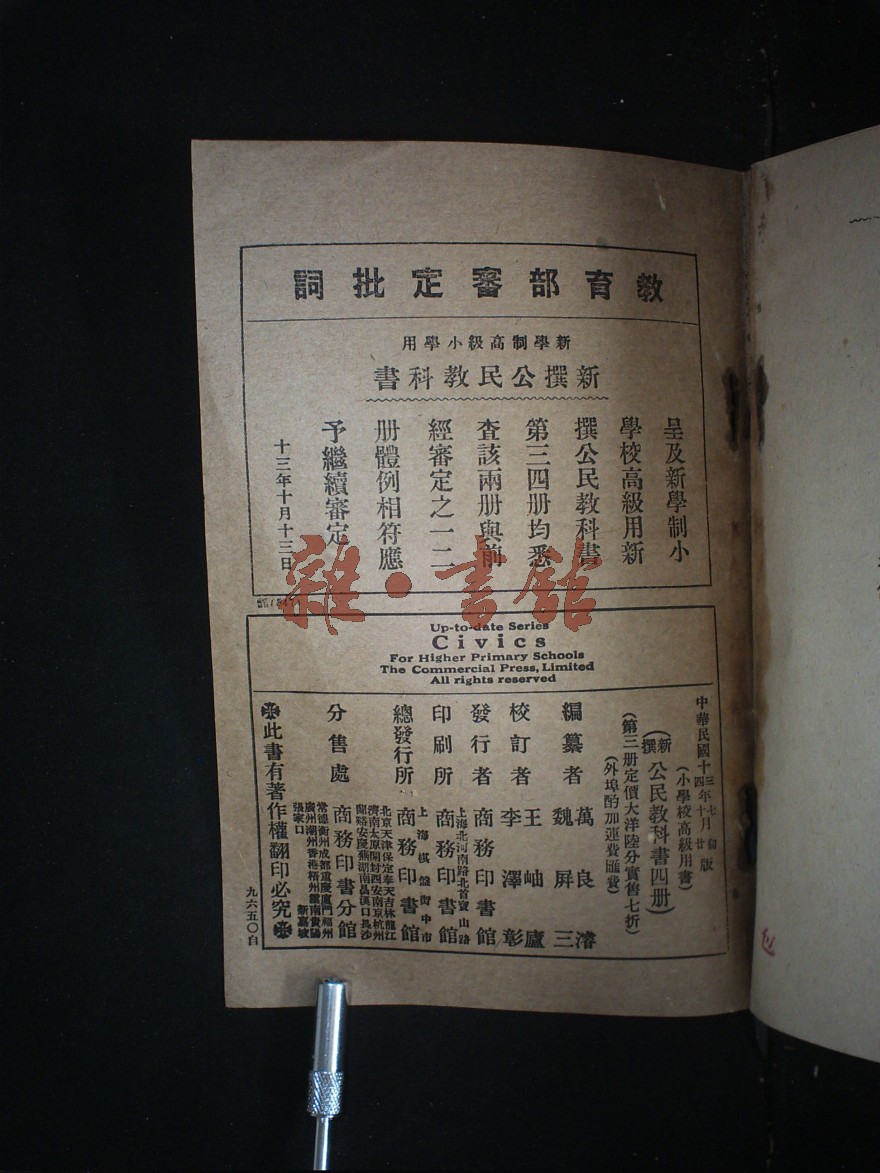 教育部審定批詞
新學制高級小學用
新撰公民教科書
呈及新學制小
學校高級用新
撰公民教科書
第三四册均悉
查該兩册與前
經審定之一二
册體例相符應
予繼續審定
十三年十月十三日
雜·書館
Up-to-date Series
Civics
For Higher Primary Schools
The Commercial Press, Limited
All rights reserved
中華民國十三年七月初版
十四年十月廿版
(小學校高級用書)
(新撰公民教科書四册)
(第三册定價大洋陸分實售七折)
(外埠酌加運費匯費)
編纂者 萬良濬
魏屏三
校訂者 王岫廬
李澤彰
發行者 商務印書館
上海北河南路北首寶山路
印刷所 商務印書館
上海棋盤街中市
總發行所 商務印書館
北京天津保定奉天吉林龍江
濟南太原開封西安南京杭州
蘭谿安慶蕪湖南昌漢口長沙
分售處 商務印書分館
常德衡州成都重慶廈門福州
廣州潮州香港梧州雲南貴陽
張家口 新嘉坡
此書有著作權翻印必究
九六五〇自